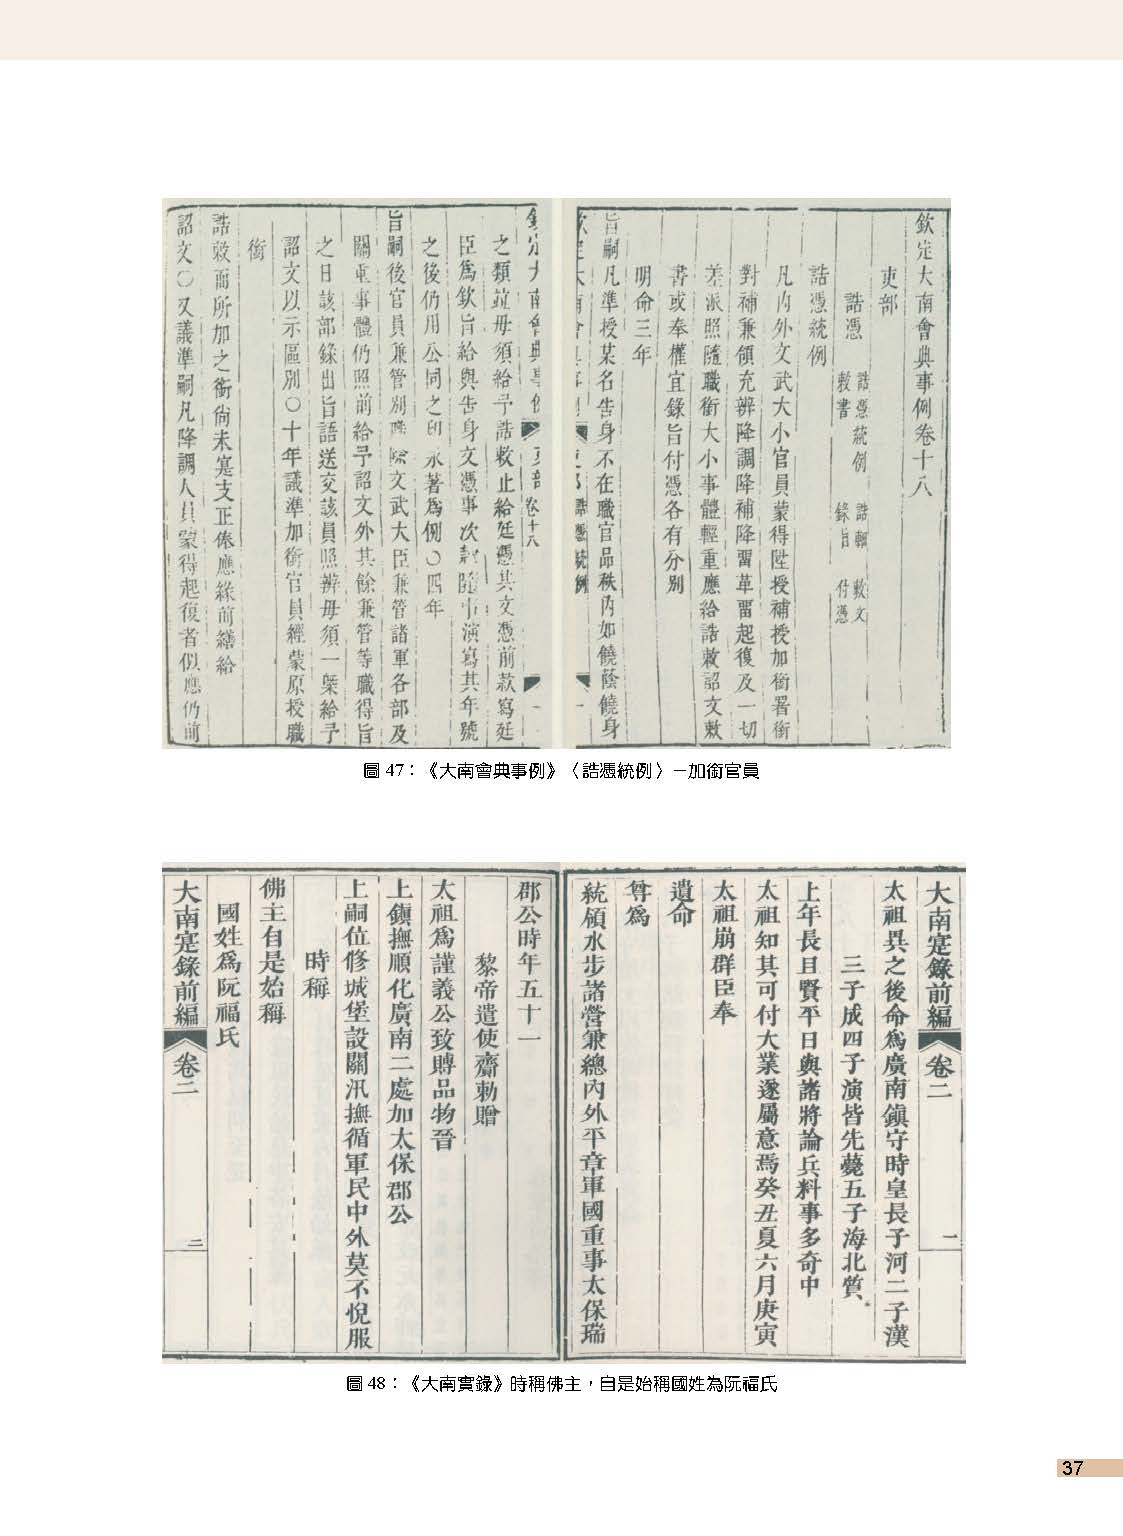 欽定大南會典事例卷十八
吏部
誥憑 誥憑統例 誥軸 敕文
敕書 錄旨 付憑
誥憑統例
凡內外文武大小官員蒙得陞授補授加銜署銜
對補兼領充辨降調降補降畱革畱起復及一切
差派照隨職銜大小事體輕重應給誥敕詔文敕
書或奉權宜錄旨付憑各有分別
明命三年
旨嗣凡準授某名告身不在職官品秩內如饒蔭饒身
之類竝毋須給予誥敕止給廷憑其文憑前款寫廷
臣爲欽旨給與告身文憑事次款隨事演寫其年號
之後仍用公同之印永著爲例〇四年
旨嗣後官員兼管別職除文武大臣兼管諸軍各部及
關重事體仍照前給予詔文外其餘兼管等職得旨
之日該部錄出旨語送交該員照辨毋須一槩給予
詔文以示區別〇十年議準加銜官員經蒙原授職
銜
誥敕而所加之銜尙未寔支正俸應緣前繕給
詔文〇又議準嗣凡降調人員蒙得起復者似應仍前
圖 47：《大南會典事例》〈誥憑統例〉－加銜官員
大南寔錄前編 卷二 一
太祖異之後命爲廣南鎭守時皇長子河二子漢
三子成四子演皆先薨五子海北質
上年長且賢平日與諸將論兵料事多奇中
太祖知其可付大業遂屬意焉癸丑夏六月庚寅
太祖崩群臣奉
遺命
尊爲
統領水步諸營兼總內外平章軍國重事太保瑞
郡公時年五十一
黎帝遣使齎勅贈
太祖爲謹義公致賻品物晉
上鎭撫順化廣南二處加太保郡公
上嗣位修城堡設關汛撫循軍民中外莫不悅服
時稱
佛主自是始稱
國姓爲阮福氏
大南寔錄前編 卷二 二
圖 48：《大南實錄》時稱佛主，自是始稱國姓為阮福氏
37